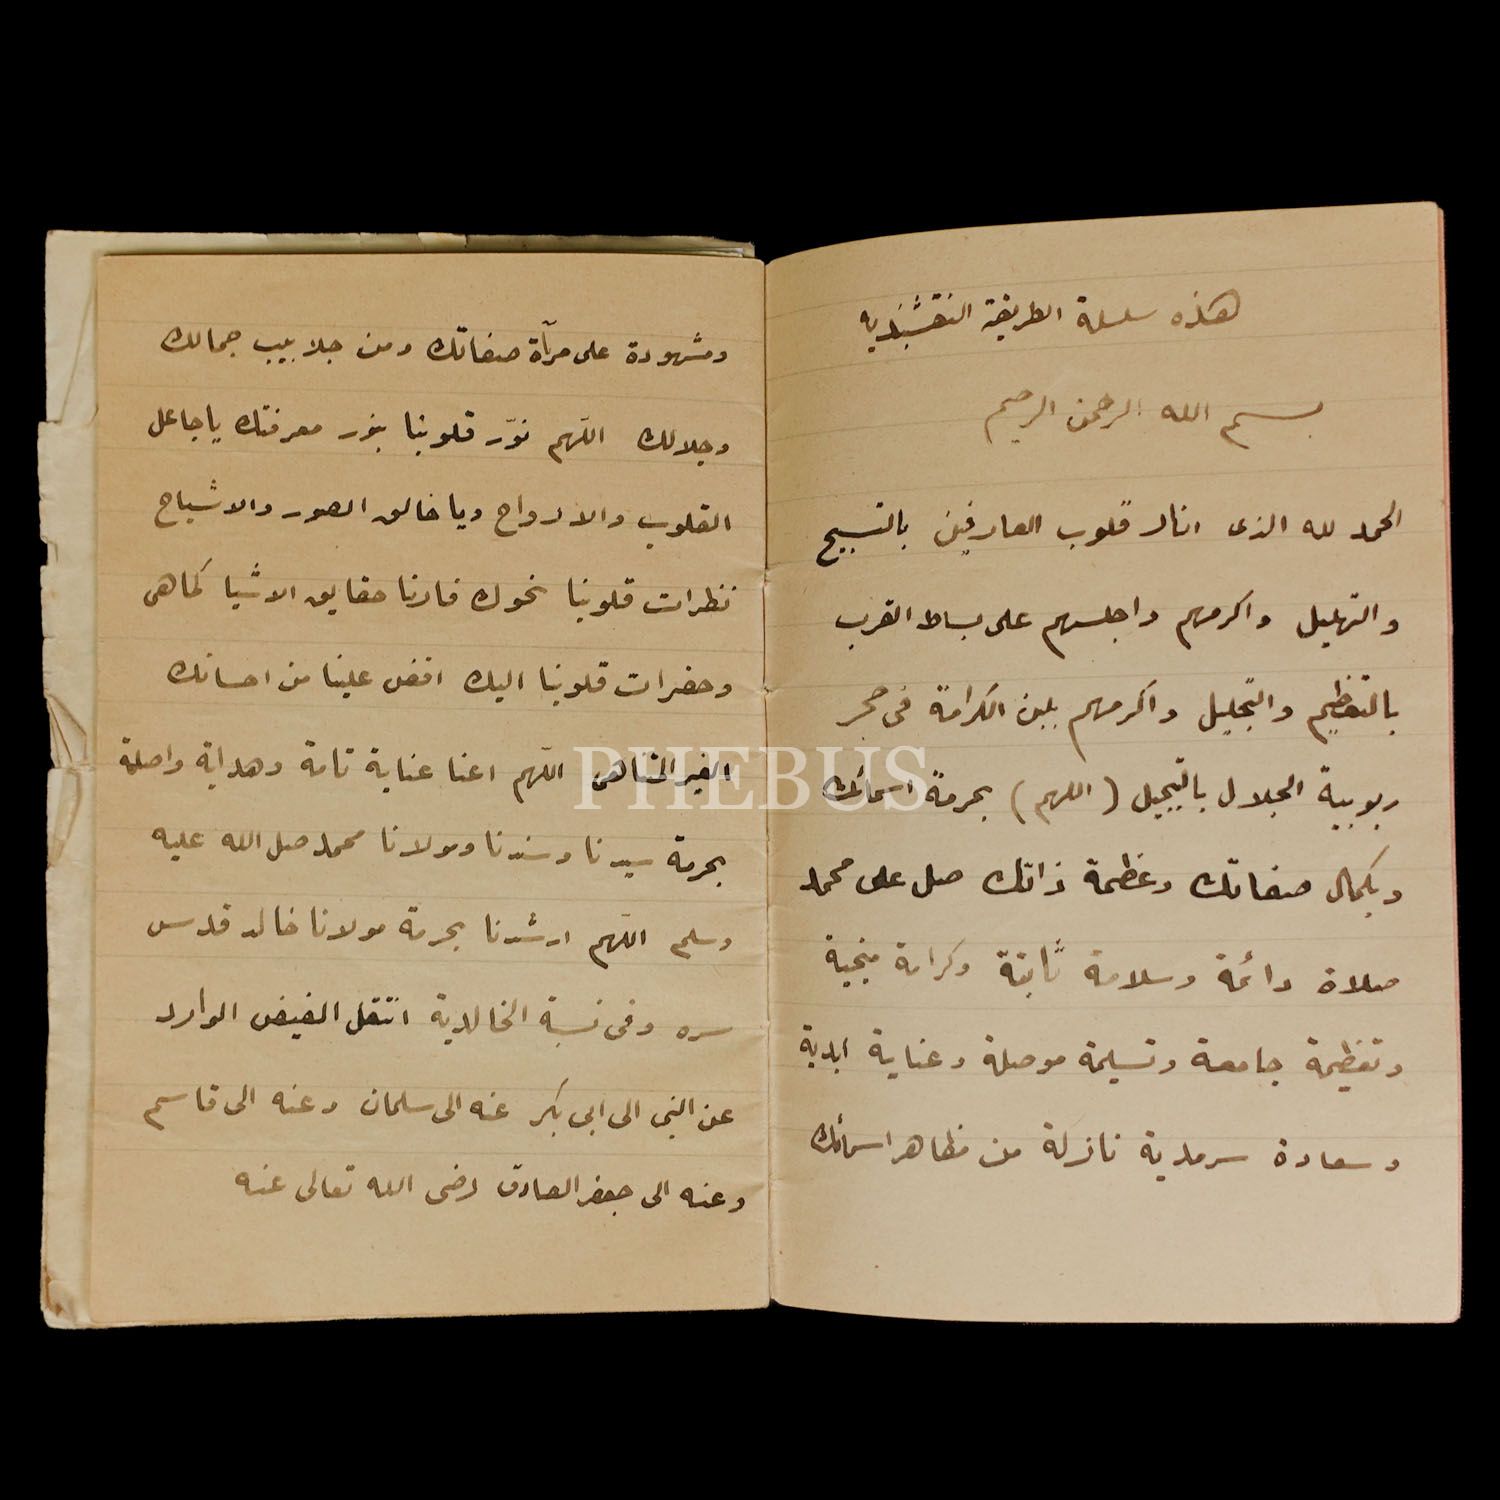 هذه سلسلة الطريقة النقشبنديه
بسم الله الرحمن الرحيم
الحمد لله الذى انار قلوب العارفين بالتسبيح
والتهليل واكرمهم واجلسهم على بساط القرب
بالتعظيم والتبجيل واكرمهم بلبن الكرامة فى حجر
ربوبية الجلال بالتبجيل (اللهم) بحرمة اسمائك
وبكمال صفاتك وعظمة ذاتك صل على محمد
صلاة دائمة وسلامة ثابتة وكرامة منجية
وتعظيمة جامعة وتسليمة موصلة وعناية ابدية
وسعادة سرمدية نازلة من مظاهر اسمائك
ومشهودة على مرآة صفاتك ومن جلابيب جمالك
وجلالك اللّهم نوّر قلوبنا بنور معرفتك ياجاعل
القلوب والارواح وياخالق الصور والاشباح
نظرات قلوبنا نحوك فارنا حقايق الاشيا كماهى
وحضرات قلوبنا اليك افض علينا من احسانك
الغير المتناهى اللّهم اعنا عناية تامة وهداية واصلة
بحرمة سيدنا وسندنا ومولانا محمد صلى الله عليه
وسلم اللّهم ارشدنا بحرمة مولانا خالد قدس
سره وفى نسبة الخالدية انتقل الفيض الوارد
عن النبى الى ابى بكر عنه الى سلمان وعنه الى قاسم
وعنه الى جعفر الصادق رضى الله تعالى عنه
PHEBUS